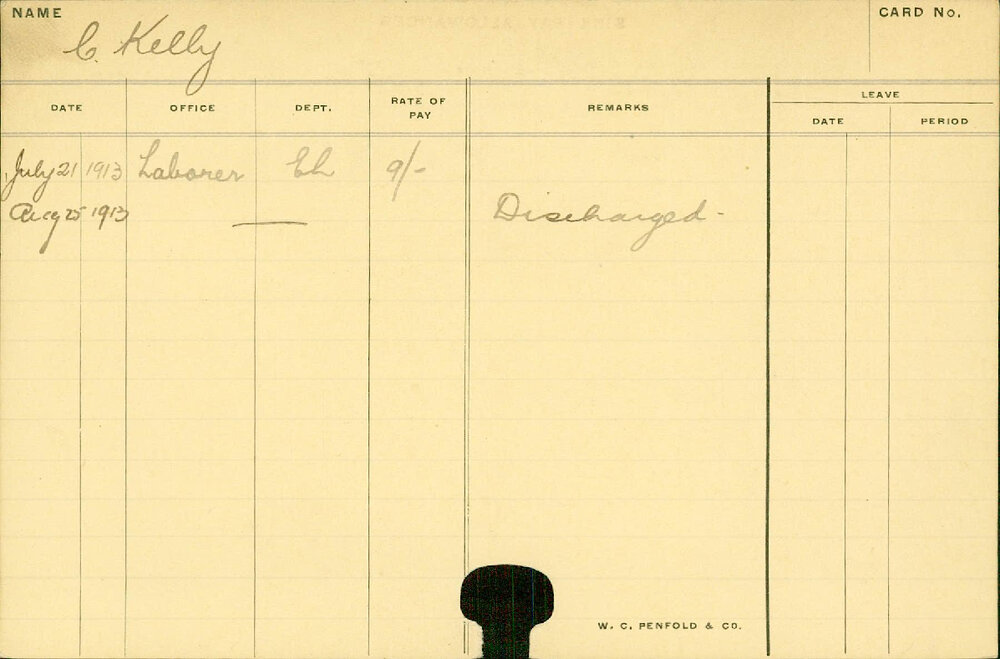 NAME
CARD No.
C. Kelly
DATE OFFICE DEPT. RATE OF PAY REMARKS LEAVE
DATE PERIOD
July 21 1913 Laborer 9/-
Aug 25 1913 Discharged -
W. C. PENFOLD & CO.